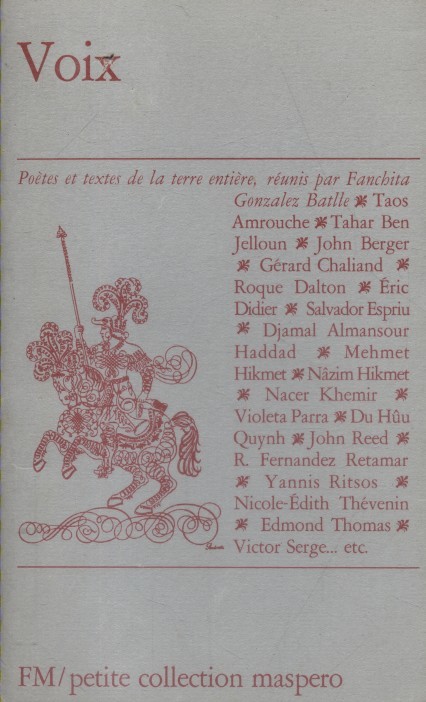 Voix
Poètes et textes de la terre entière, réunis par Fanchita
Gonzalez Batlle ❧ Taos
Amrouche ❧ Tahar Ben
Jelloun ❧ John Berger
❧ Gérard Chaliand ❧
Roque Dalton ❧ Éric
Didier ❧ Salvador Espriu
❧ Djamal Almansour
Haddad ❧ Mehmet
Hikmet ❧ Nâzim Hikmet
❧ Nacer Khemir ❧
Violeta Parra ❧ Du Hûu
Quynh ❧ John Reed ❧
R. Fernandez Retamar
❧ Yannis Ritsos ❧
Nicole-Édith Thévenin
❧ Edmond Thomas ❧
Victor Serge... etc.
FM/petite collection maspero